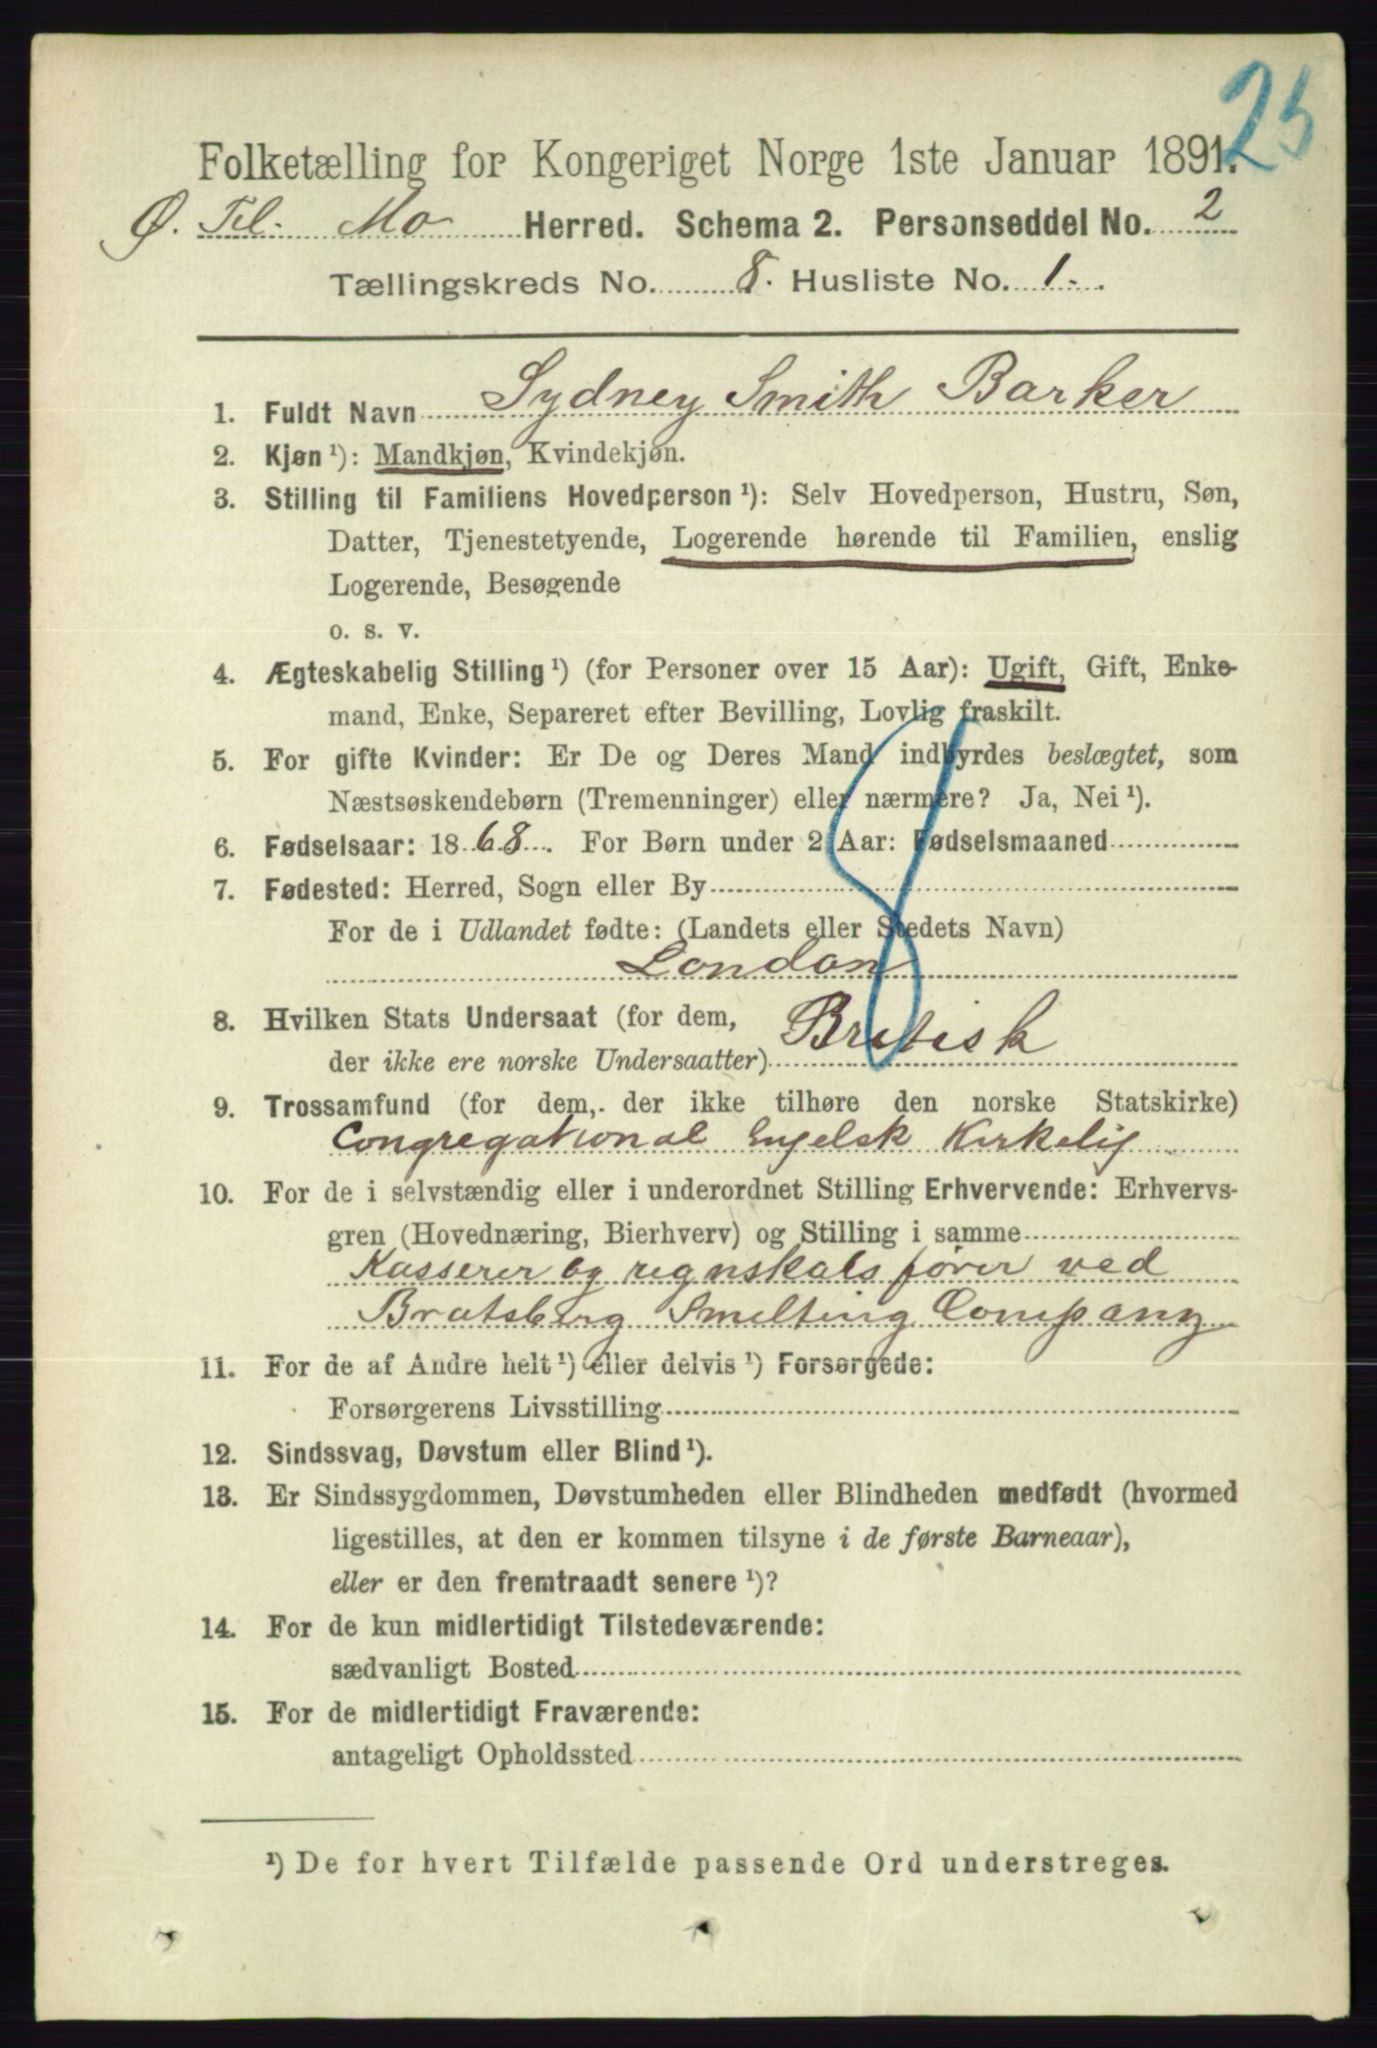 25
Folketælling for Kongeriget Norge 1ste Januar 1891.
Ø. Tel. Mo Herred. Schema 2. Personseddel No. 2
Tællingskreds No. 8. Husliste No. 1.
1. Fuldt Navn Sydney Smith Barker
2. Kjøn ¹): Mandkjøn, Kvindekjøn.
3. Stilling til Familiens Hovedperson ¹): Selv Hovedperson, Hustru, Søn,
Datter, Tjenestetyende, Logerende hørende til Familien, enslig
Logerende, Besøgende
o. s. v.
4. Ægteskabelig Stilling ¹) (for Personer over 15 Aar): Ugift, Gift, Enke-
mand, Enke, Separeret efter Bevilling, Lovlig fraskilt.
5. For gifte Kvinder: Er De og Deres Mand indbyrdes beslægtet, som
Næstsøskendebørn (Tremenninger) eller nærmere? Ja, Nei ¹).
6. Fødselsaar: 1868. For Børn under 2 Aar: Fødselsmaaned
7. Fødested: Herred, Sogn eller By
For de i Udlandet fødte: (Landets eller Stedets Navn)
London
8. Hvilken Stats Undersaat (for dem, Britisk
der ikke ere norske Undersaatter)
9. Trossamfund (for dem, der ikke tilhøre den norske Statskirke)
Congregational Engelsk Kirkelig
10. For de i selvstændig eller i underordnet Stilling Erhvervende: Erhvervs-
gren (Hovednæring, Bierhverv) og Stilling i samme
Kasserer og regnskabs fører ved
Bratsberg Smelting Company
11. For de af Andre helt ¹) eller delvis ¹) Forsørgede:
Forsørgerens Livsstilling
12. Sindssvag, Døvstum eller Blind ¹).
13. Er Sindssygdommen, Døvstumheden eller Blindheden medfødt (hvormed
ligestilles, at den er kommen tilsyne i de første Barneaar),
eller er den fremtraadt senere ¹)?
14. For de kun midlertidigt Tilstedeværende:
sædvanligt Bosted
15. For de midlertidigt Fraværende:
antageligt Opholdssted
¹) De for hvert Tilfælde passende Ord understreges.